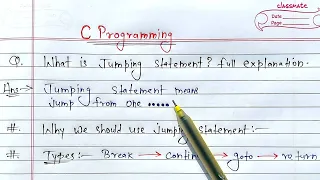 classmate
Date
Page
C Programming
Q. What is Jumping statement? full explanation.
Ans:→ Jumping Statement means
Jump from one ......
#. Why we should use jumping statement:-
#. Types:- Break → contin → goto → return